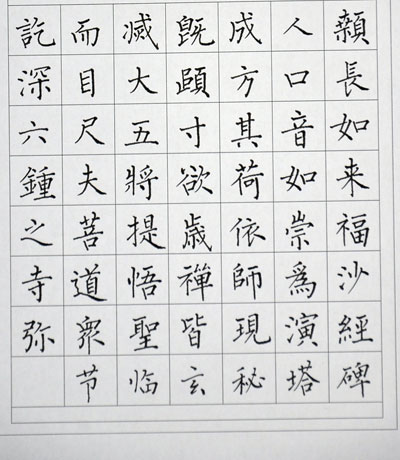 長如来福沙經碑
人口音如崇為演塔
成方其荷依師現秘
既頤寸欲歲禪皆玄
滅大五將提悟聖临
而目尺夫菩道衆节
訖深六鍾之寺弥